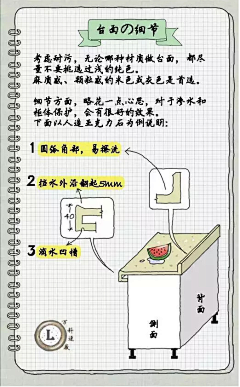 台面の细节
考虑耐污，无论哪种材质做台面，都尽
量不要挑选过浅的纯色。
麻质感、颗粒感的米色或灰色是首选。
细节方面，略花一点心思，对于渗水和
柜体保护，会有很好的效果。
下面以人造亚克力石为例说明：
1 圆弧角部，易擦洗
2 挡水外沿翻起5mm
40
3 滴水凹槽
侧面
背面
L